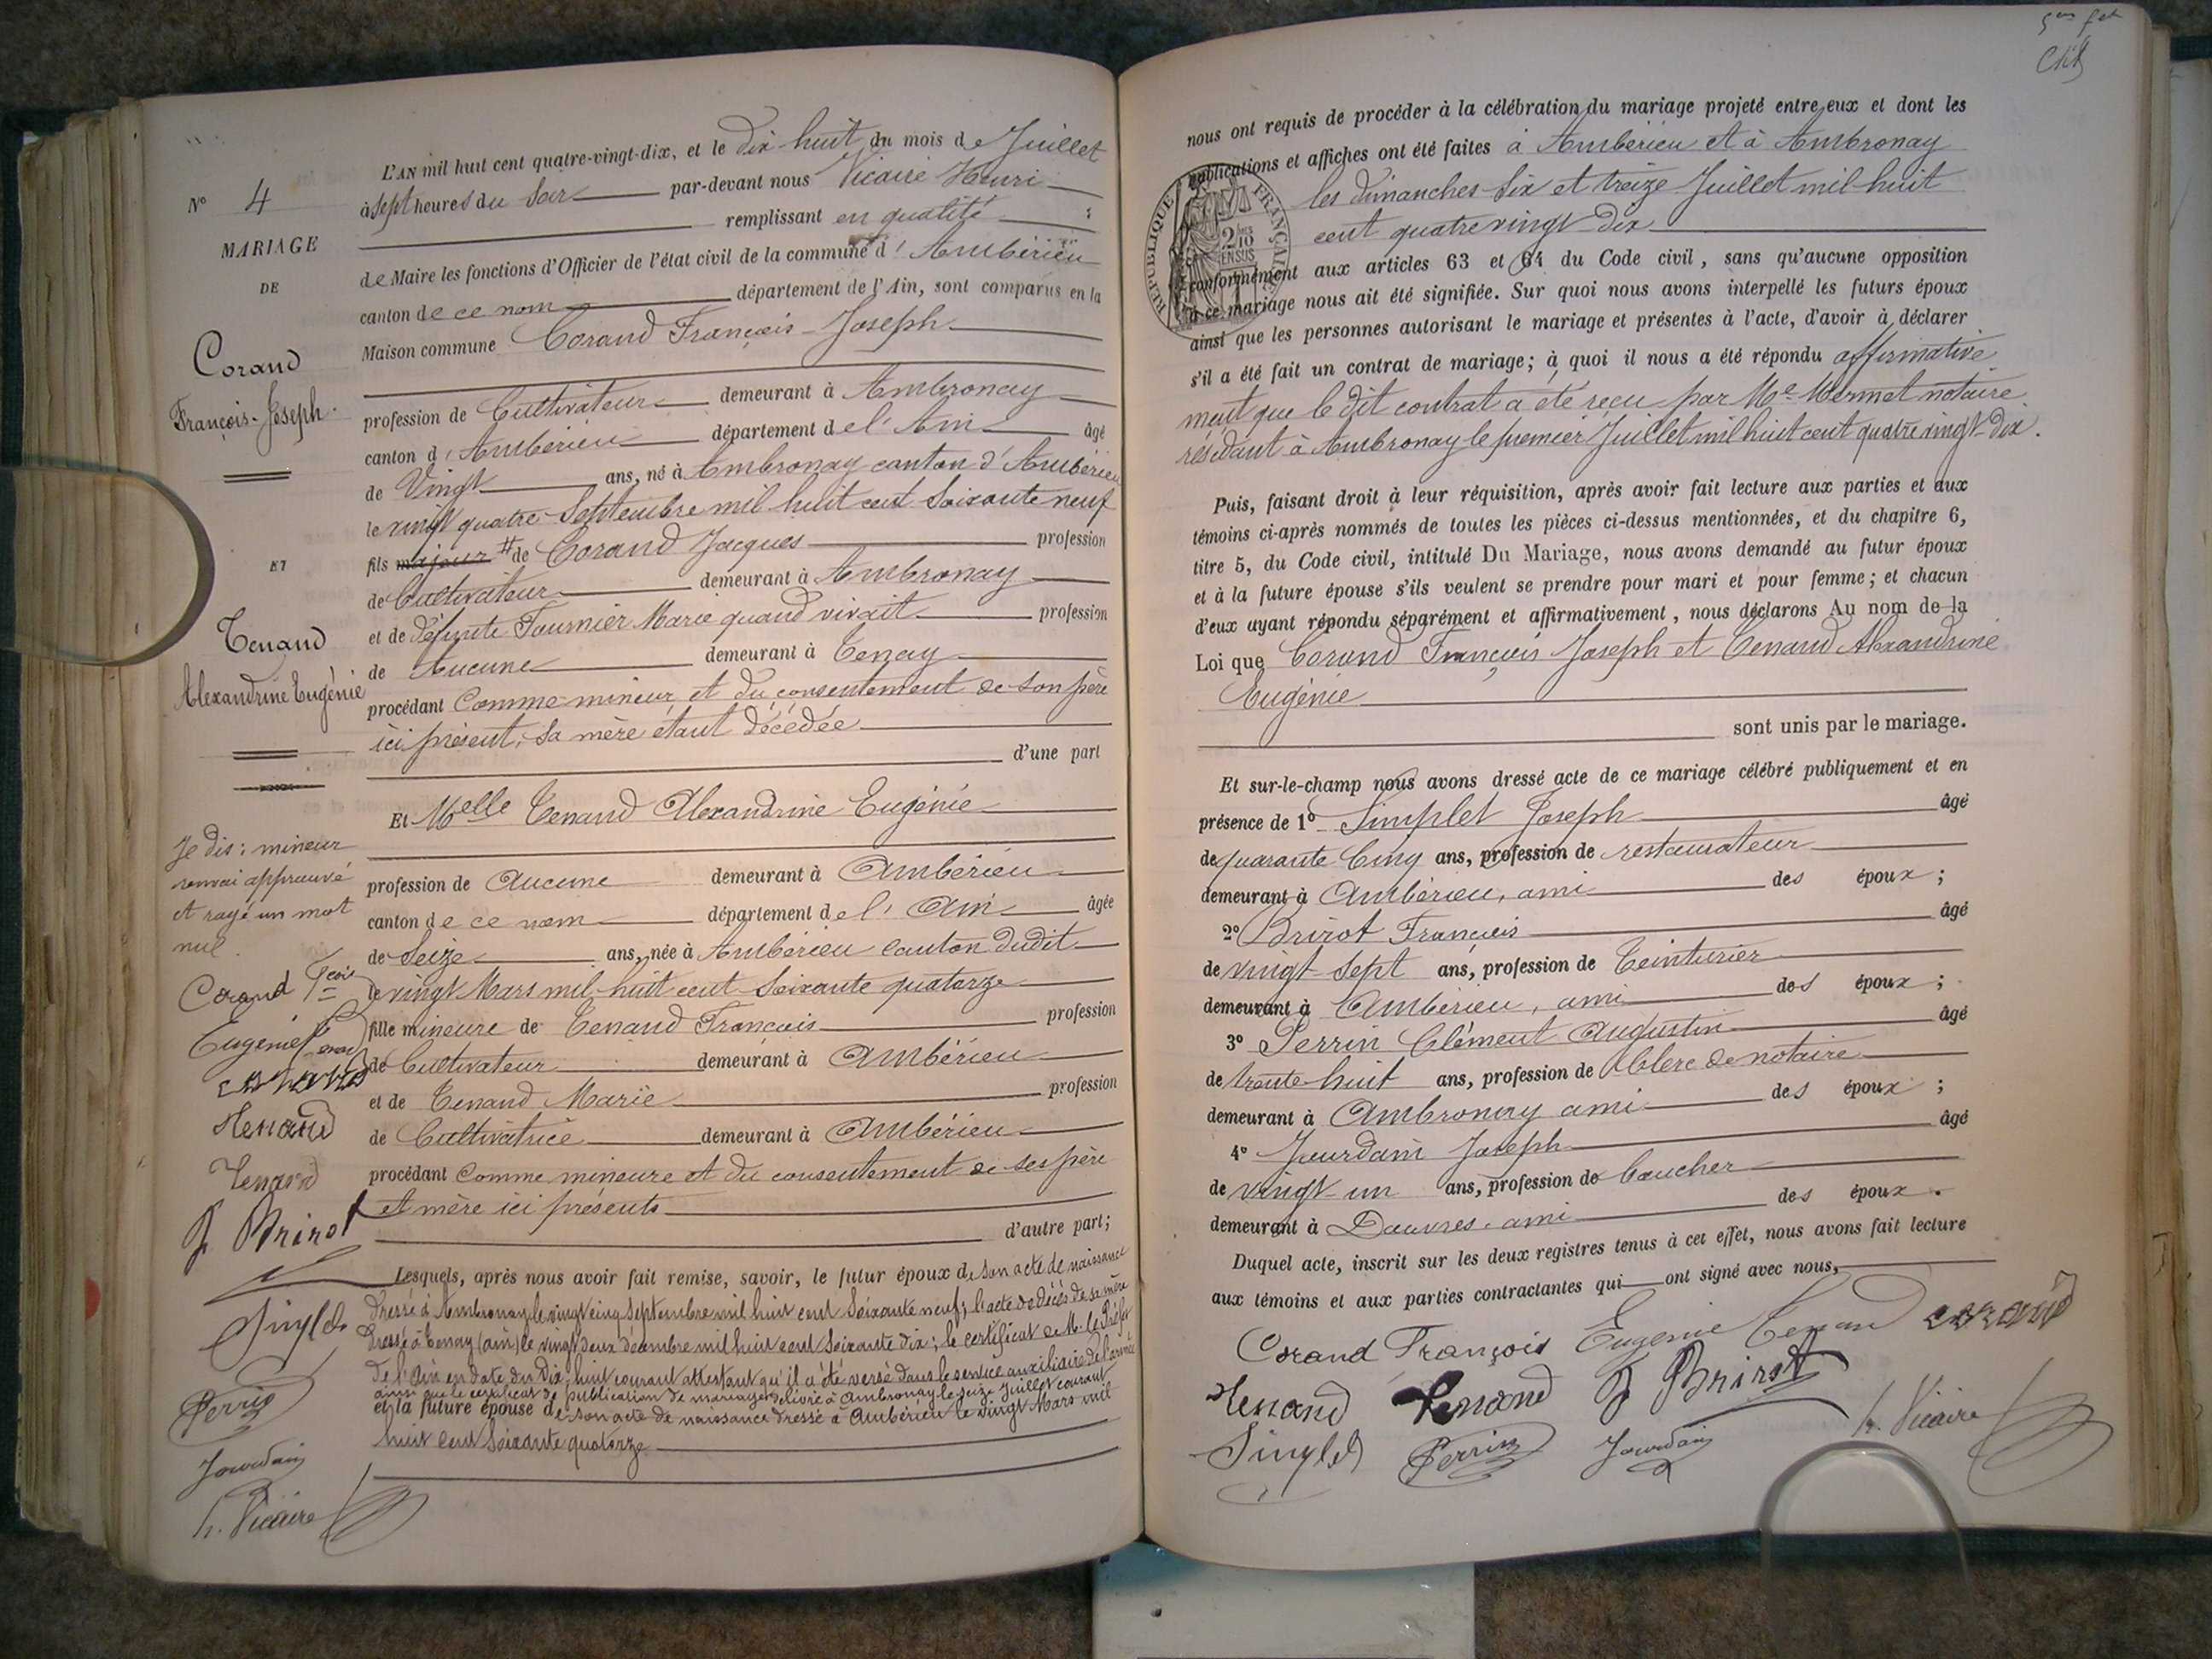 N° 4
MARIAGE
DE
Corand
François-Joseph
ET
Tenand
Alexandrine Eugénie
Je dis : mineur
renvoi approuvé
et rayé un mot
nul.
Corand Fcois
Eugénie Tenand
corand
Tenand
Tenand
F Brirot
Simplet
Perrin
Jourdain
h. Vicaire
L'AN mil huit cent quatre-vingt-dix, et le dix-huit du mois de Juillet
à sept heures du soir par-devant nous Vicaire Henri
remplissant en qualité
de Maire les fonctions d'Officier de l'état civil de la commune d'Ambérieu
canton de ce nom département de l'Ain, sont comparus en la
Maison commune Corand François-Joseph
profession de Cultivateur demeurant à Ambronay
canton d'Ambérieu département de l'Ain âgé
de Vingt ans, né à Ambronay canton d'Ambérieu
le vingt quatre Septembre mil huit cent soixante neuf
fils majeur # de Corand Jacques profession
de Cultivateur demeurant à Ambronay
et de défunte Fournier Marie quand vivait profession
de Aucune demeurant à Tenay
procédant Comme mineur et du consentement de son père
ici présent, sa mère étant décédée
d'une part
Et Melle Tenand Alexandrine Eugénie
profession de Aucune demeurant à Ambérieu
canton de ce nom département de l'Ain âgée
de Seize ans, née à Ambérieu canton dudit
le vingt Mars mil huit cent soixante quatorze
fille mineure de Tenand François profession
de Cultivateur demeurant à Ambérieu
et de Tenand Marie profession
de Cultivatrice demeurant à Ambérieu
procédant Comme mineure et du consentement de ses père
et mère ici présents
d'autre part;
Lesquels, après nous avoir fait remise, savoir, le futur époux de son acte de naissance
dressé à Ambronay le vingt cinq Septembre mil huit cent soixante neuf; l'acte de décès de sa mère
dressé à Tenay (Ain) le vingt deux décembre mil huit cent soixante dix; le certificat de M. le Préfet
de l'Ain en date du dix-huit courant attestant qu'il a été versé dans le service auxiliaire de l'armée
ainsi que le certificat de publication de mariage délivré à Ambronay le seize Juillet courant
et la future épouse de son acte de naissance dressé à Ambérieu le vingt Mars mil
huit cent soixante quatorze
nous ont requis de procéder à la célébration du mariage projeté entre eux et dont les
publications et affiches ont été faites à Ambérieu et à Ambronay
les dimanches six et treize Juillet mil huit
cent quatre vingt dix
RÉPUBLIQUE FRANÇAISE
conformément aux articles 63 et 64 du Code civil, sans qu'aucune opposition
à ce mariage nous ait été signifiée. Sur quoi nous avons interpellé les futurs époux
ainsi que les personnes autorisant le mariage et présentes à l'acte, d'avoir à déclarer
s'il a été fait un contrat de mariage; à quoi il nous a été répondu affirmative
ment que le dit contrat a été reçu par Me Mermet notaire
résidant à Ambronay le premier Juillet mil huit cent quatre vingt-dix.
Puis, faisant droit à leur réquisition, après avoir fait lecture aux parties et aux
témoins ci-après nommés de toutes les pièces ci-dessus mentionnées, et du chapitre 6,
titre 5, du Code civil, intitulé Du Mariage, nous avons demandé au futur époux
et à la future épouse s'ils veulent se prendre pour mari et pour femme; et chacun
d'eux ayant répondu séparément et affirmativement, nous déclarons Au nom de la
Loi que Corand François Joseph et Tenand Alexandrine
Eugénie
sont unis par le mariage.
Et sur-le-champ nous avons dressé acte de ce mariage célébré publiquement et en
présence de 1° Simplet Joseph âgé
de quarante cinq ans, profession de restaurateur
demeurant à Ambérieu, ami des époux;
2° Brirot François âgé
de vingt sept ans, profession de Teinturier
demeurant à Ambérieu, ami des époux;
3° Perrin Clément Augustin âgé
de trente huit ans, profession de Clerc de notaire
demeurant à Ambronay ami des époux;
4° Jourdain Joseph âgé
de vingt un ans, profession de boucher
demeurant à Douvres, ami des époux.
Duquel acte, inscrit sur les deux registres tenus à cet effet, nous avons fait lecture
aux témoins et aux parties contractantes qui ont signé avec nous,
Corand François Eugénie Tenand corand
Tenand Tenand F Brirot
Simplet Perrin Jourdain h. Vicaire